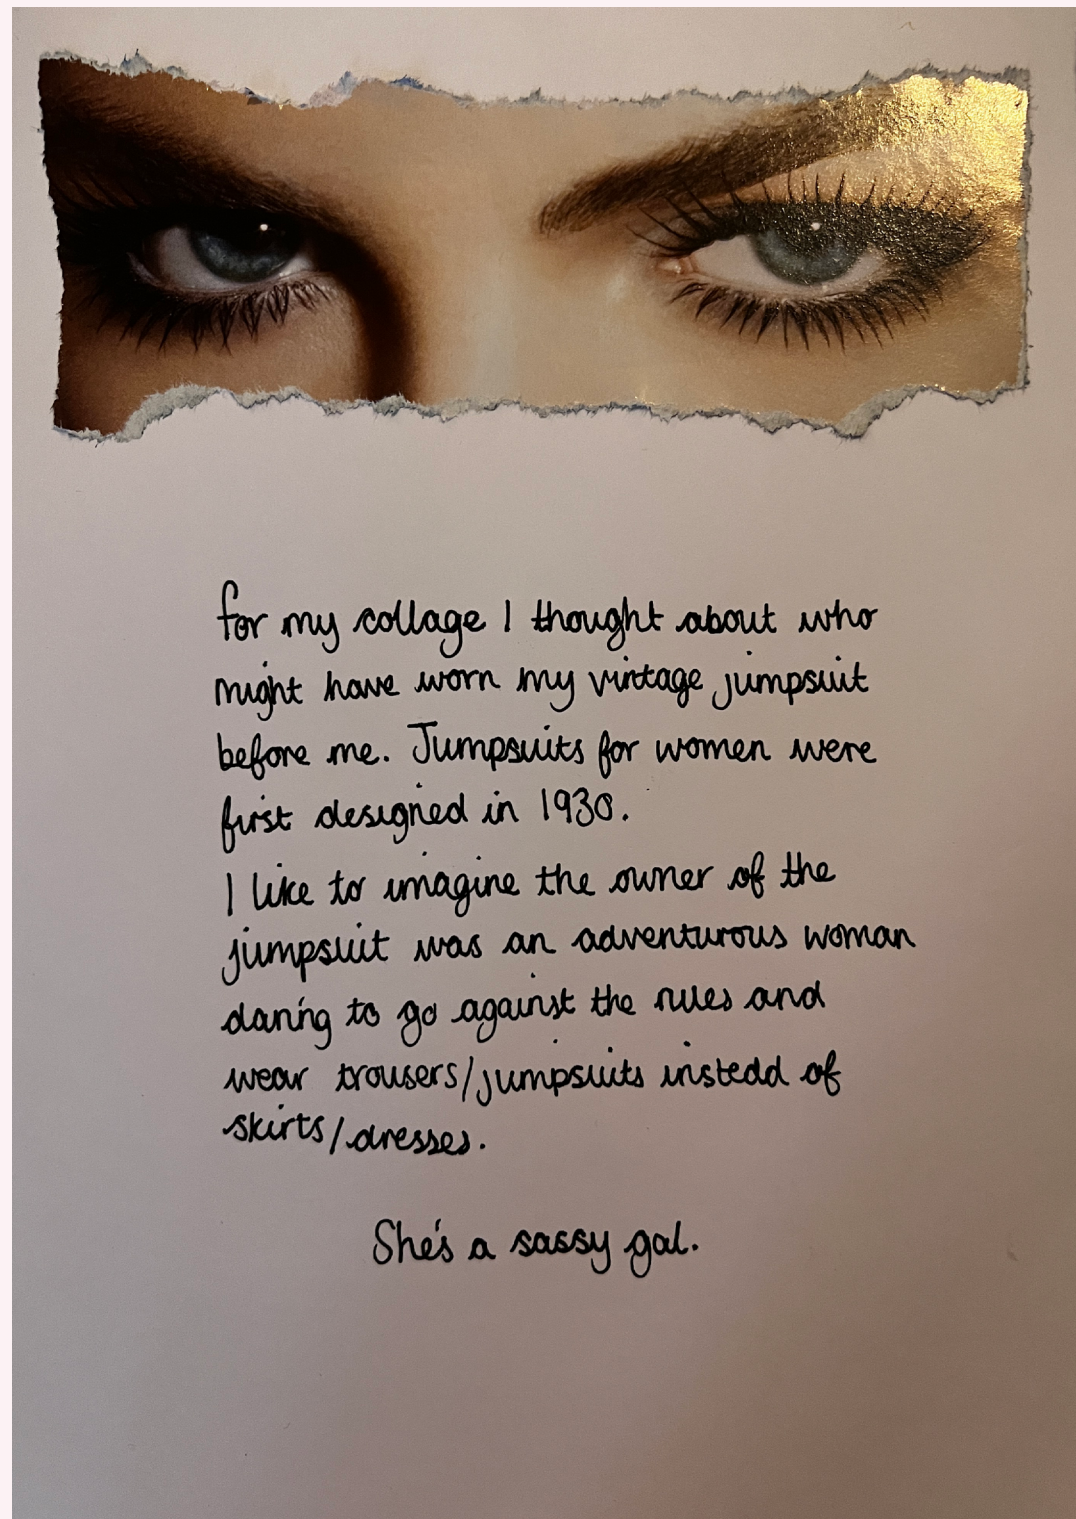 for my collage I thought about who
might have worn my vintage jumpsuit
before me. Jumpsuits for women were
first designed in 1930.
I like to imagine the owner of the
jumpsuit was an adventurous woman
daring to go against the rules and
wear trousers/jumpsuits instead of
skirts/dresses.
She's a sassy gal.